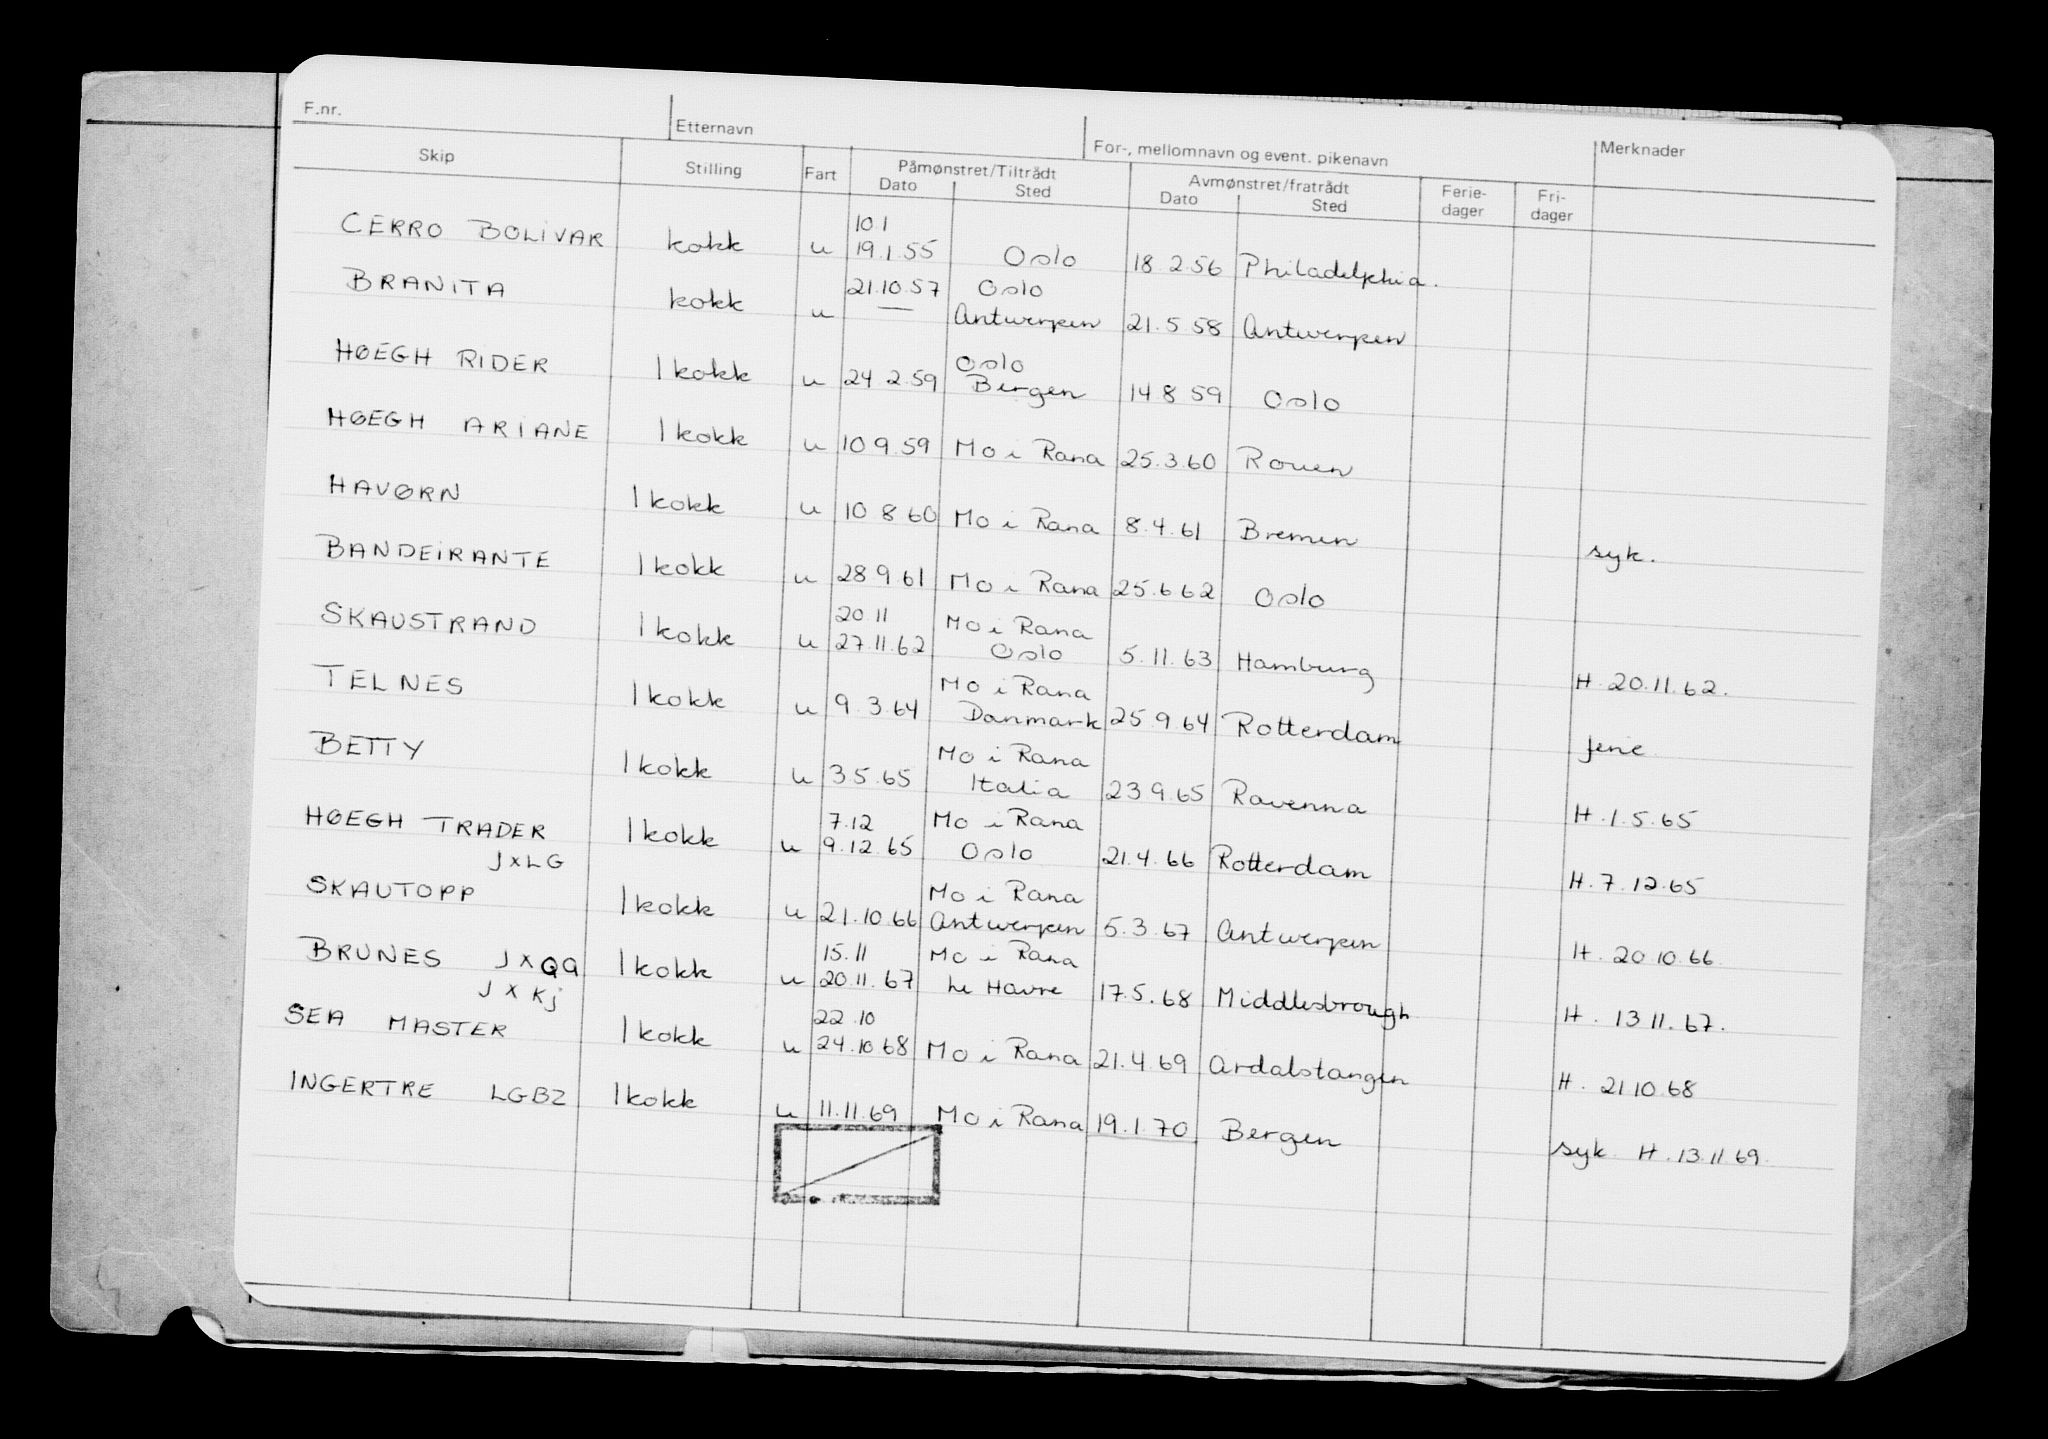 F.nr. Etternavn For-, mellomnavn og event. pikenavn Merknader
Skip Stilling Fart Påmønstret/Tiltrådt Avmønstret/fratrådt Ferie- Fri-
Dato Sted Dato Sted dager dager
10 1
CERRO BOLIVAR kokk u 19.1.55 Oslo 18.2.56 Philadelphia.
21.10.57 Oslo
BRANITA kokk u — Antwerpen 21.5.58 Antwerpen
Oslo
HØEGH RIDER 1 kokk u 24 2.59 Bergen 14 8 59 Oslo
HØEGH ARIANE 1 kokk u 10 9.59 Mo i Rana 25.3.60 Rouen
HAVØRN 1 kokk u 10 8 60 Mo i Rana 8.4.61 Bremen syk.
BANDEIRANTE 1 kokk u 28 9 61 Mo i Rana 25.6 62 Oslo
20 11 Mo i Rana
SKAUSTRAND 1 kokk u 27.11.62 Oslo 5.11.63 Hamburg H. 20.11.62.
Mo i Rana
TELNES 1 kokk u 9.3.64 Danmark 25.9.64 Rotterdam ferie
Mo i Rana
BETTY 1 kokk u 3.5.65 Italia 23 9.65 Ravenna H.1.5.65
7.12 Mo i Rana
HØEGH TRADER 1 kokk u 9.12.65 Oslo 21.4.66 Rotterdam H.7.12.65
JXLG
Mo i Rana
SKAUTOPP 1 kokk u 21.10.66 Antwerpen 5.3.67 Antwerpen H. 20.10.66.
15.11 Mo i Rana
BRUNES JXQQ 1 kokk u 20.11.67 Le Havre 17.5.68 Middlesbrough H. 13 11.67.
JXKJ
22.10
SEA MASTER 1 kokk u 24.10 68 Mo i Rana 21.4.69 Ardalstangen H. 21.10.68
INGERTRE LGBZ 1 kokk u 11.11.69 Mo i Rana 19.1.70 Bergen syk H.13.11 69.